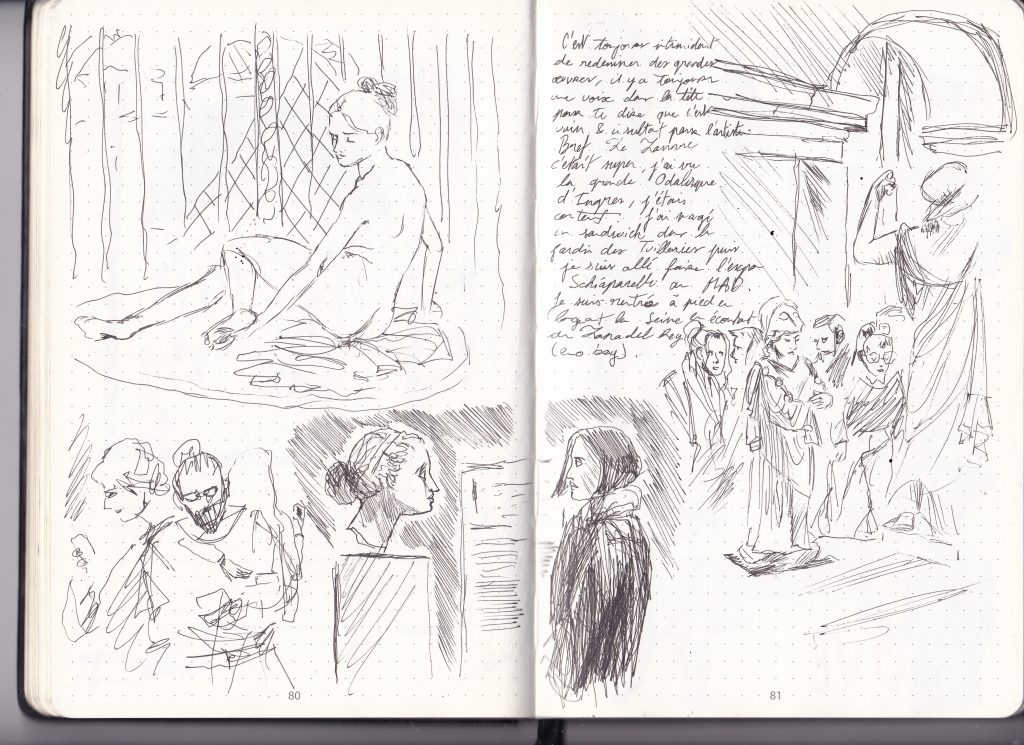 C'est toujours intimidant
de redessiner des grandes
œuvres, il y a toujours
une voix dans la tête
pour te dire que c'est
vain, & insultant pour l'artiste.
Bref. Le Louvre
c'était super, j'ai vu
la grande Odalisque
d'Ingres, j'étais
content, j'ai mangé
un sandwich dans le
jardin des Tuileries puis
je suis allé faire l'expo
Schiaparelli au MAD.
Je suis rentré à pied en
longeant la Seine en écoutant
du Lana del Rey
(emo boy).
80
81